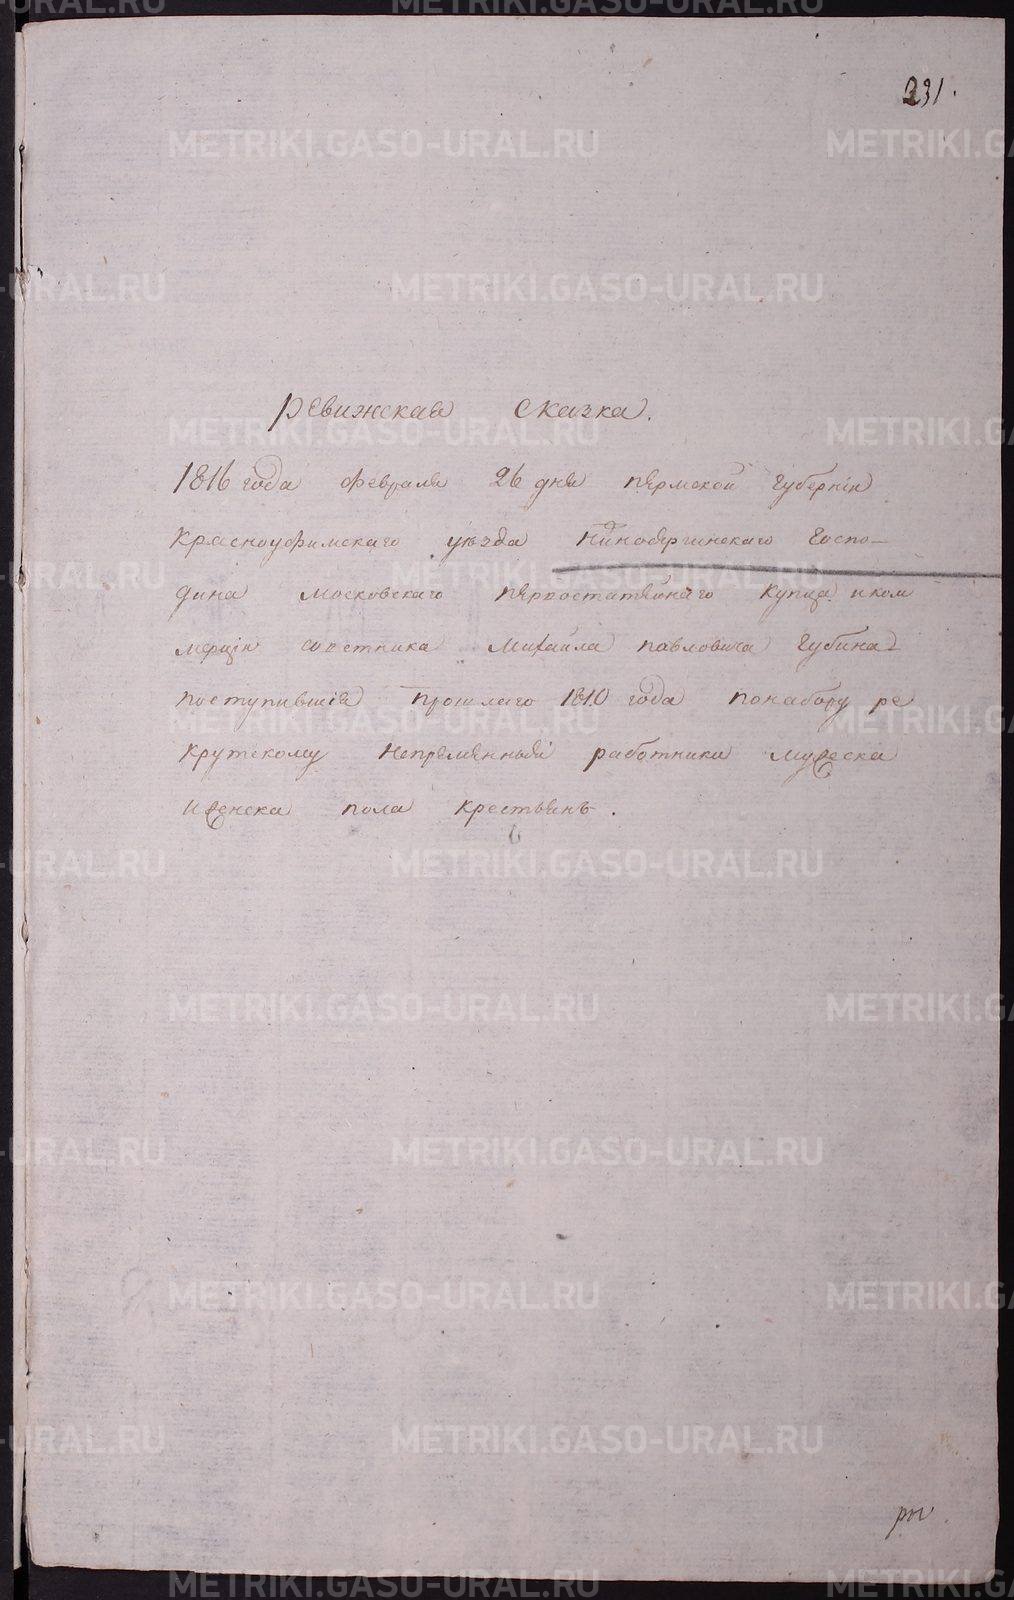 231.
Ревижская сказка.
1816 года февраля 26 дня пермской губернiи
Красноуфимскаго уезда Нижносергинскаго Госпо-
дина московскаго первостатейнаго купца иком
мерцiи советника Михаила павловича Губина
поступившiя прошлаго 1810 года понабору ре
крутскому непременныя работники мужеска
иженска пола крестьянъ.
METRIKI.GASO-URAL.RU